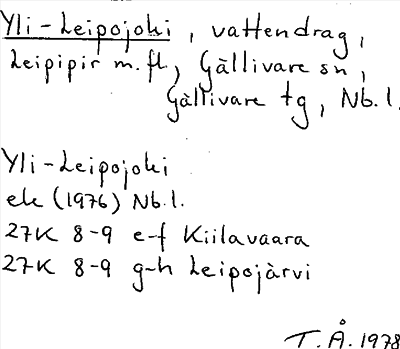 Yli-Leipojoki, vattendrag,
Leipipir m.fl., Gällivare sn,
Gällivare tg, Nb.l.
Yli-Leipojoki
ek (1976) Nb.l.
27K 8-9 e-f Kiilavaara
27K 8-9 g-h Leipojärvi
T.Å. 1978